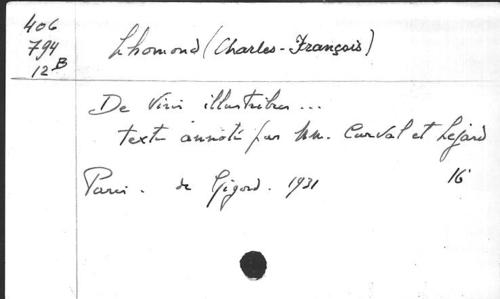 406
794
12 B
Lhomond (Charles-François)
De Viris illustribus ...
texte annoté par MM. Curval et Lejard
Paris. de Gigord. 1931 16°